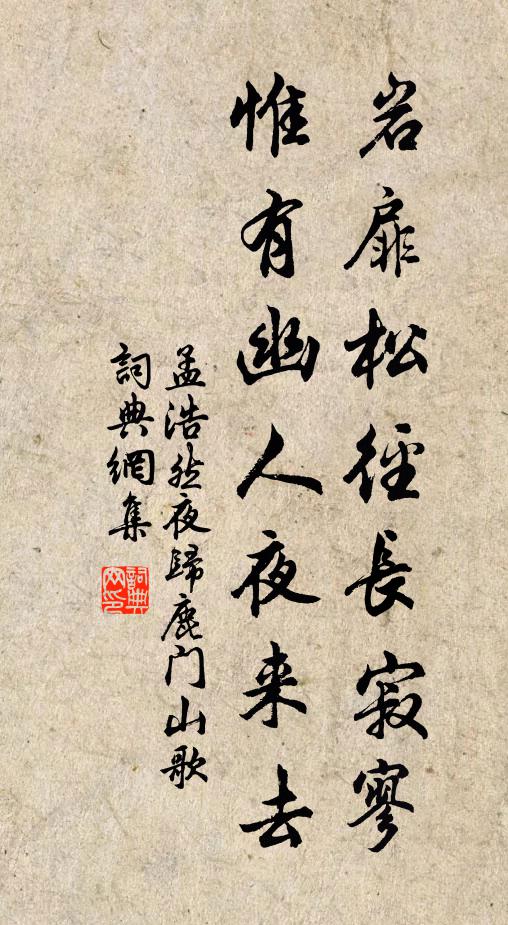 岩扉松徑長寂寥
惟有幽人夜来去
孟浩然夜歸鹿门山歌
詞典網集
詞典
网印